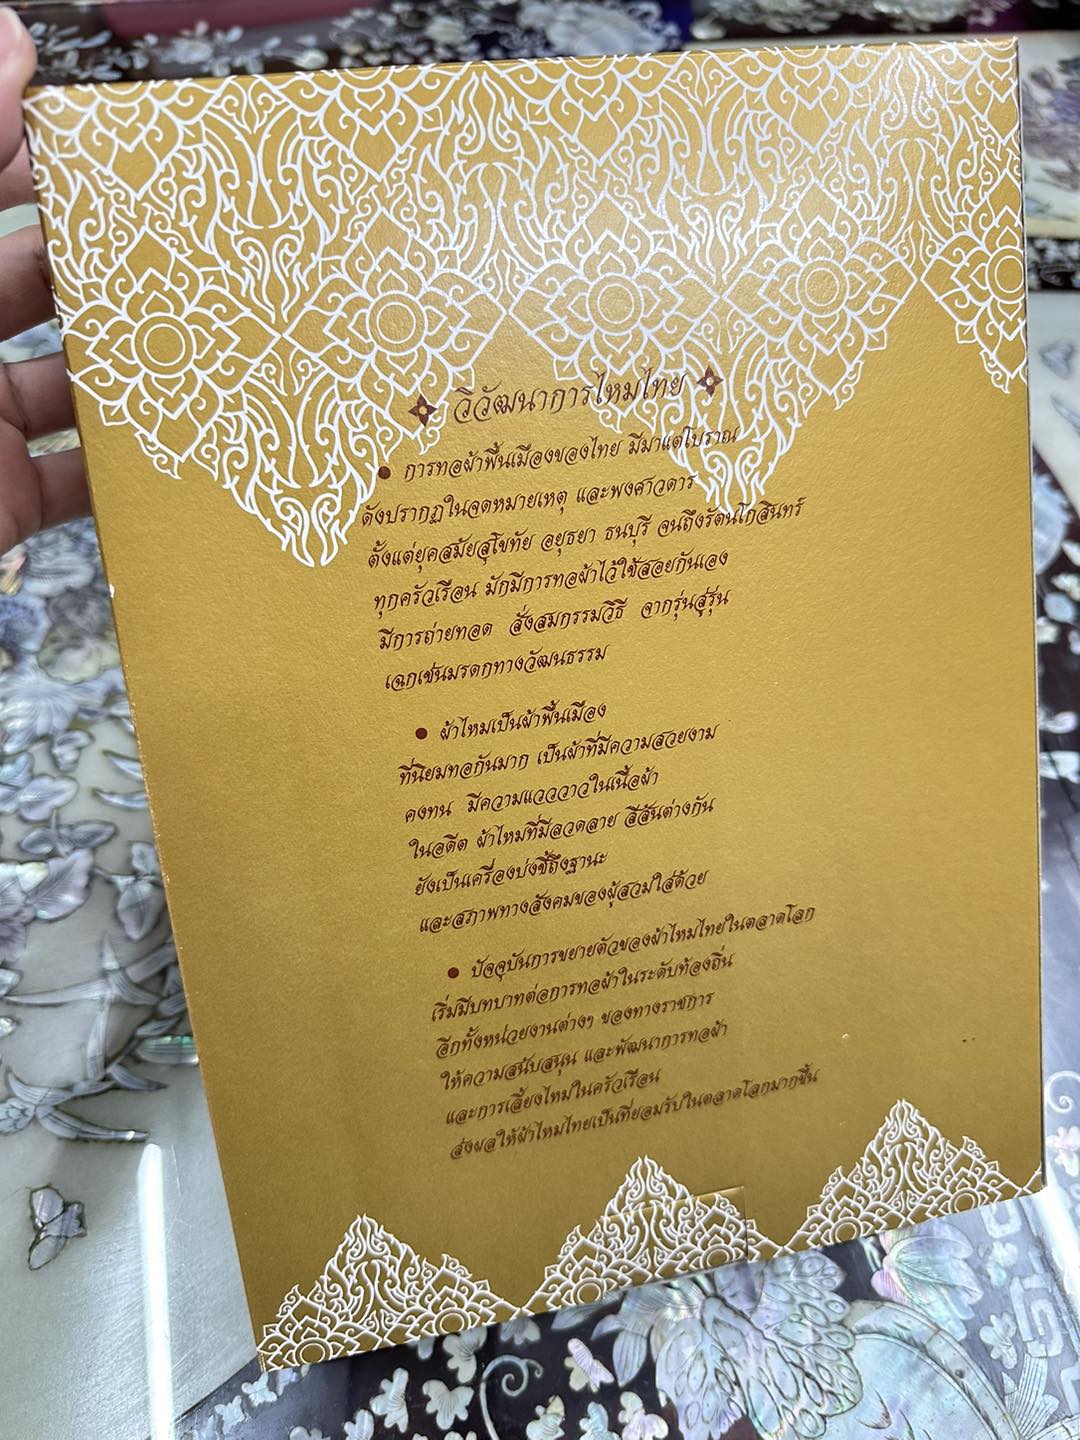 วิวัฒนาการไหมไทย
● การทอผ้าพื้นเมืองของไทย มีมาแต่โบราณ
ดังปรากฏในจดหมายเหตุ และพงศาวดาร
ตั้งแต่ยุคสมัยสุโขทัย อยุธยา ธนบุรี จนถึงรัตนโกสินทร์
ทุกครัวเรือน มักมีการทอผ้าไว้ใช้สอยกันเอง
มีการถ่ายทอด สั่งสมกรรมวิธี จากรุ่นสู่รุ่น
เฉกเช่นมรดกทางวัฒนธรรม
● ผ้าไหมเป็นผ้าพื้นเมือง
ที่นิยมทอกันมาก เป็นผ้าที่มีความสวยงาม
คงทน มีความแวววาวในเนื้อผ้า
ในอดีต ผ้าไหมที่มีลวดลาย สีสันต่างกัน
ยังเป็นเครื่องบ่งชี้ถึงฐานะ
และสภาพทางสังคมของผู้สวมใส่ด้วย
● ปัจจุบันการขยายตัวของผ้าไหมไทยในตลาดโลก
เริ่มมีบทบาทต่อการทอผ้าในระดับท้องถิ่น
อีกทั้งหน่วยงานต่างๆ ของทางราชการ
ให้ความสนับสนุน และพัฒนาการทอผ้า
และการเลี้ยงไหมในครัวเรือน
ส่งผลให้ผ้าไหมไทยเป็นที่ยอมรับในตลาดโลกมากขึ้น